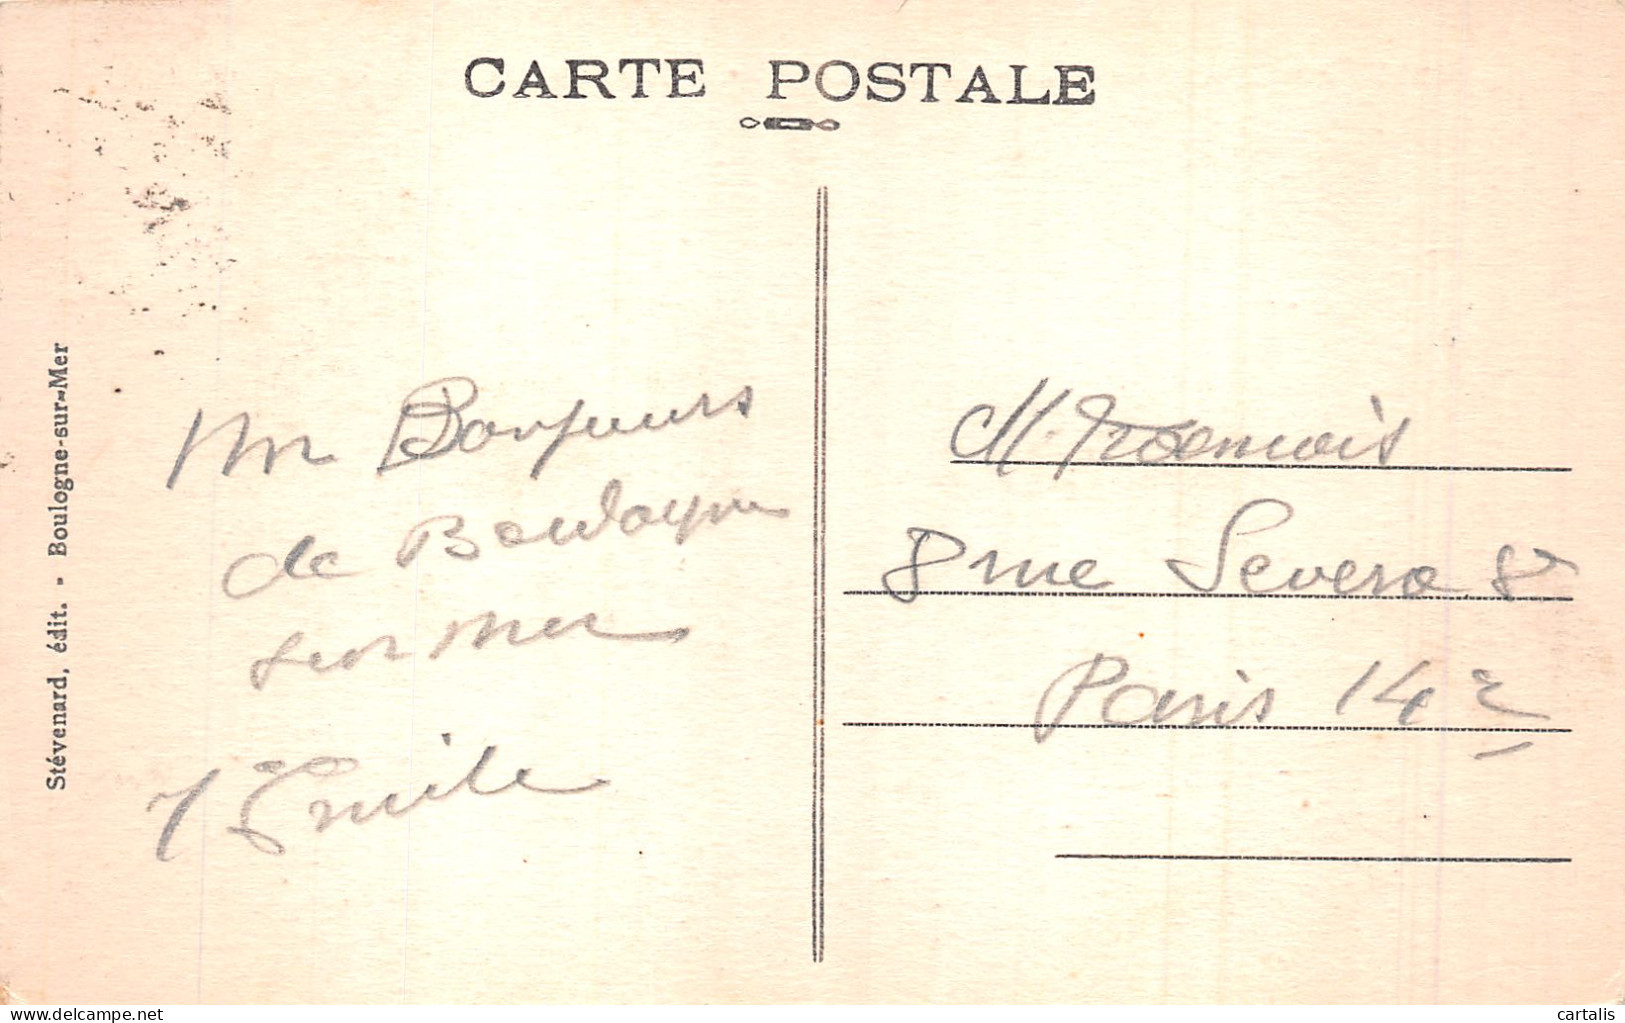 CARTE POSTALE
Stévenard, édit. - Boulogne-sur-Mer
un Bonjours
de Boulogne
sur mer
Emile
M.
8 rue Severo 8
Paris 14e
delcampe.net
cartalis